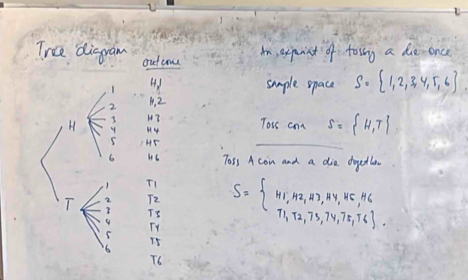 Tree diagram
outcome
H
1
2
3
4
5
6
H,1
H,2
H3
H4
H5
H6
T
1
2
3
4
5
6
T1
T2
T3
T4
T5
T6
An expoint of tossy a die once
sample space S = { 1, 2, 3, 4, 5, 6 }
Toss coin S = { H, T }
Toss A coin and a die together
S = { H1, H2, H3, H4, H5, H6
T1, T2, T3, T4, T5, T6 } .